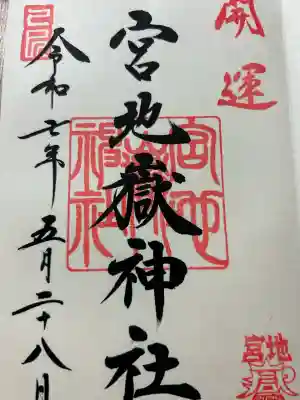 開運
宮地嶽神社
宮地嶽神社
令和七年五月二十八日
宮地嶽